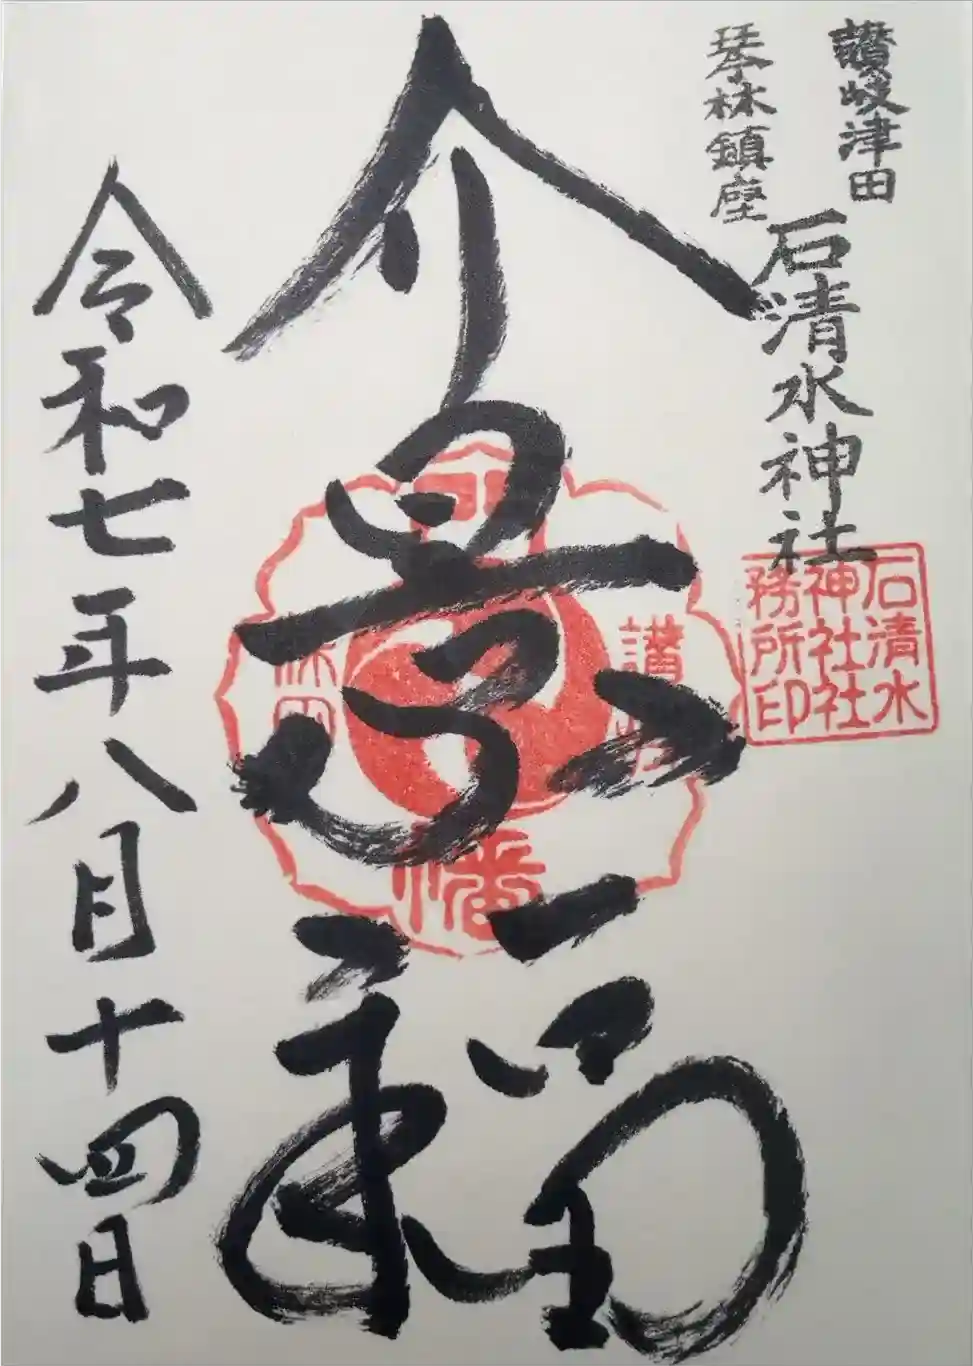 讃岐津田
琴林鎮座
石清水神社
石清水
神社社
務所印
介景福
讃
幡
令和七年八月十四日